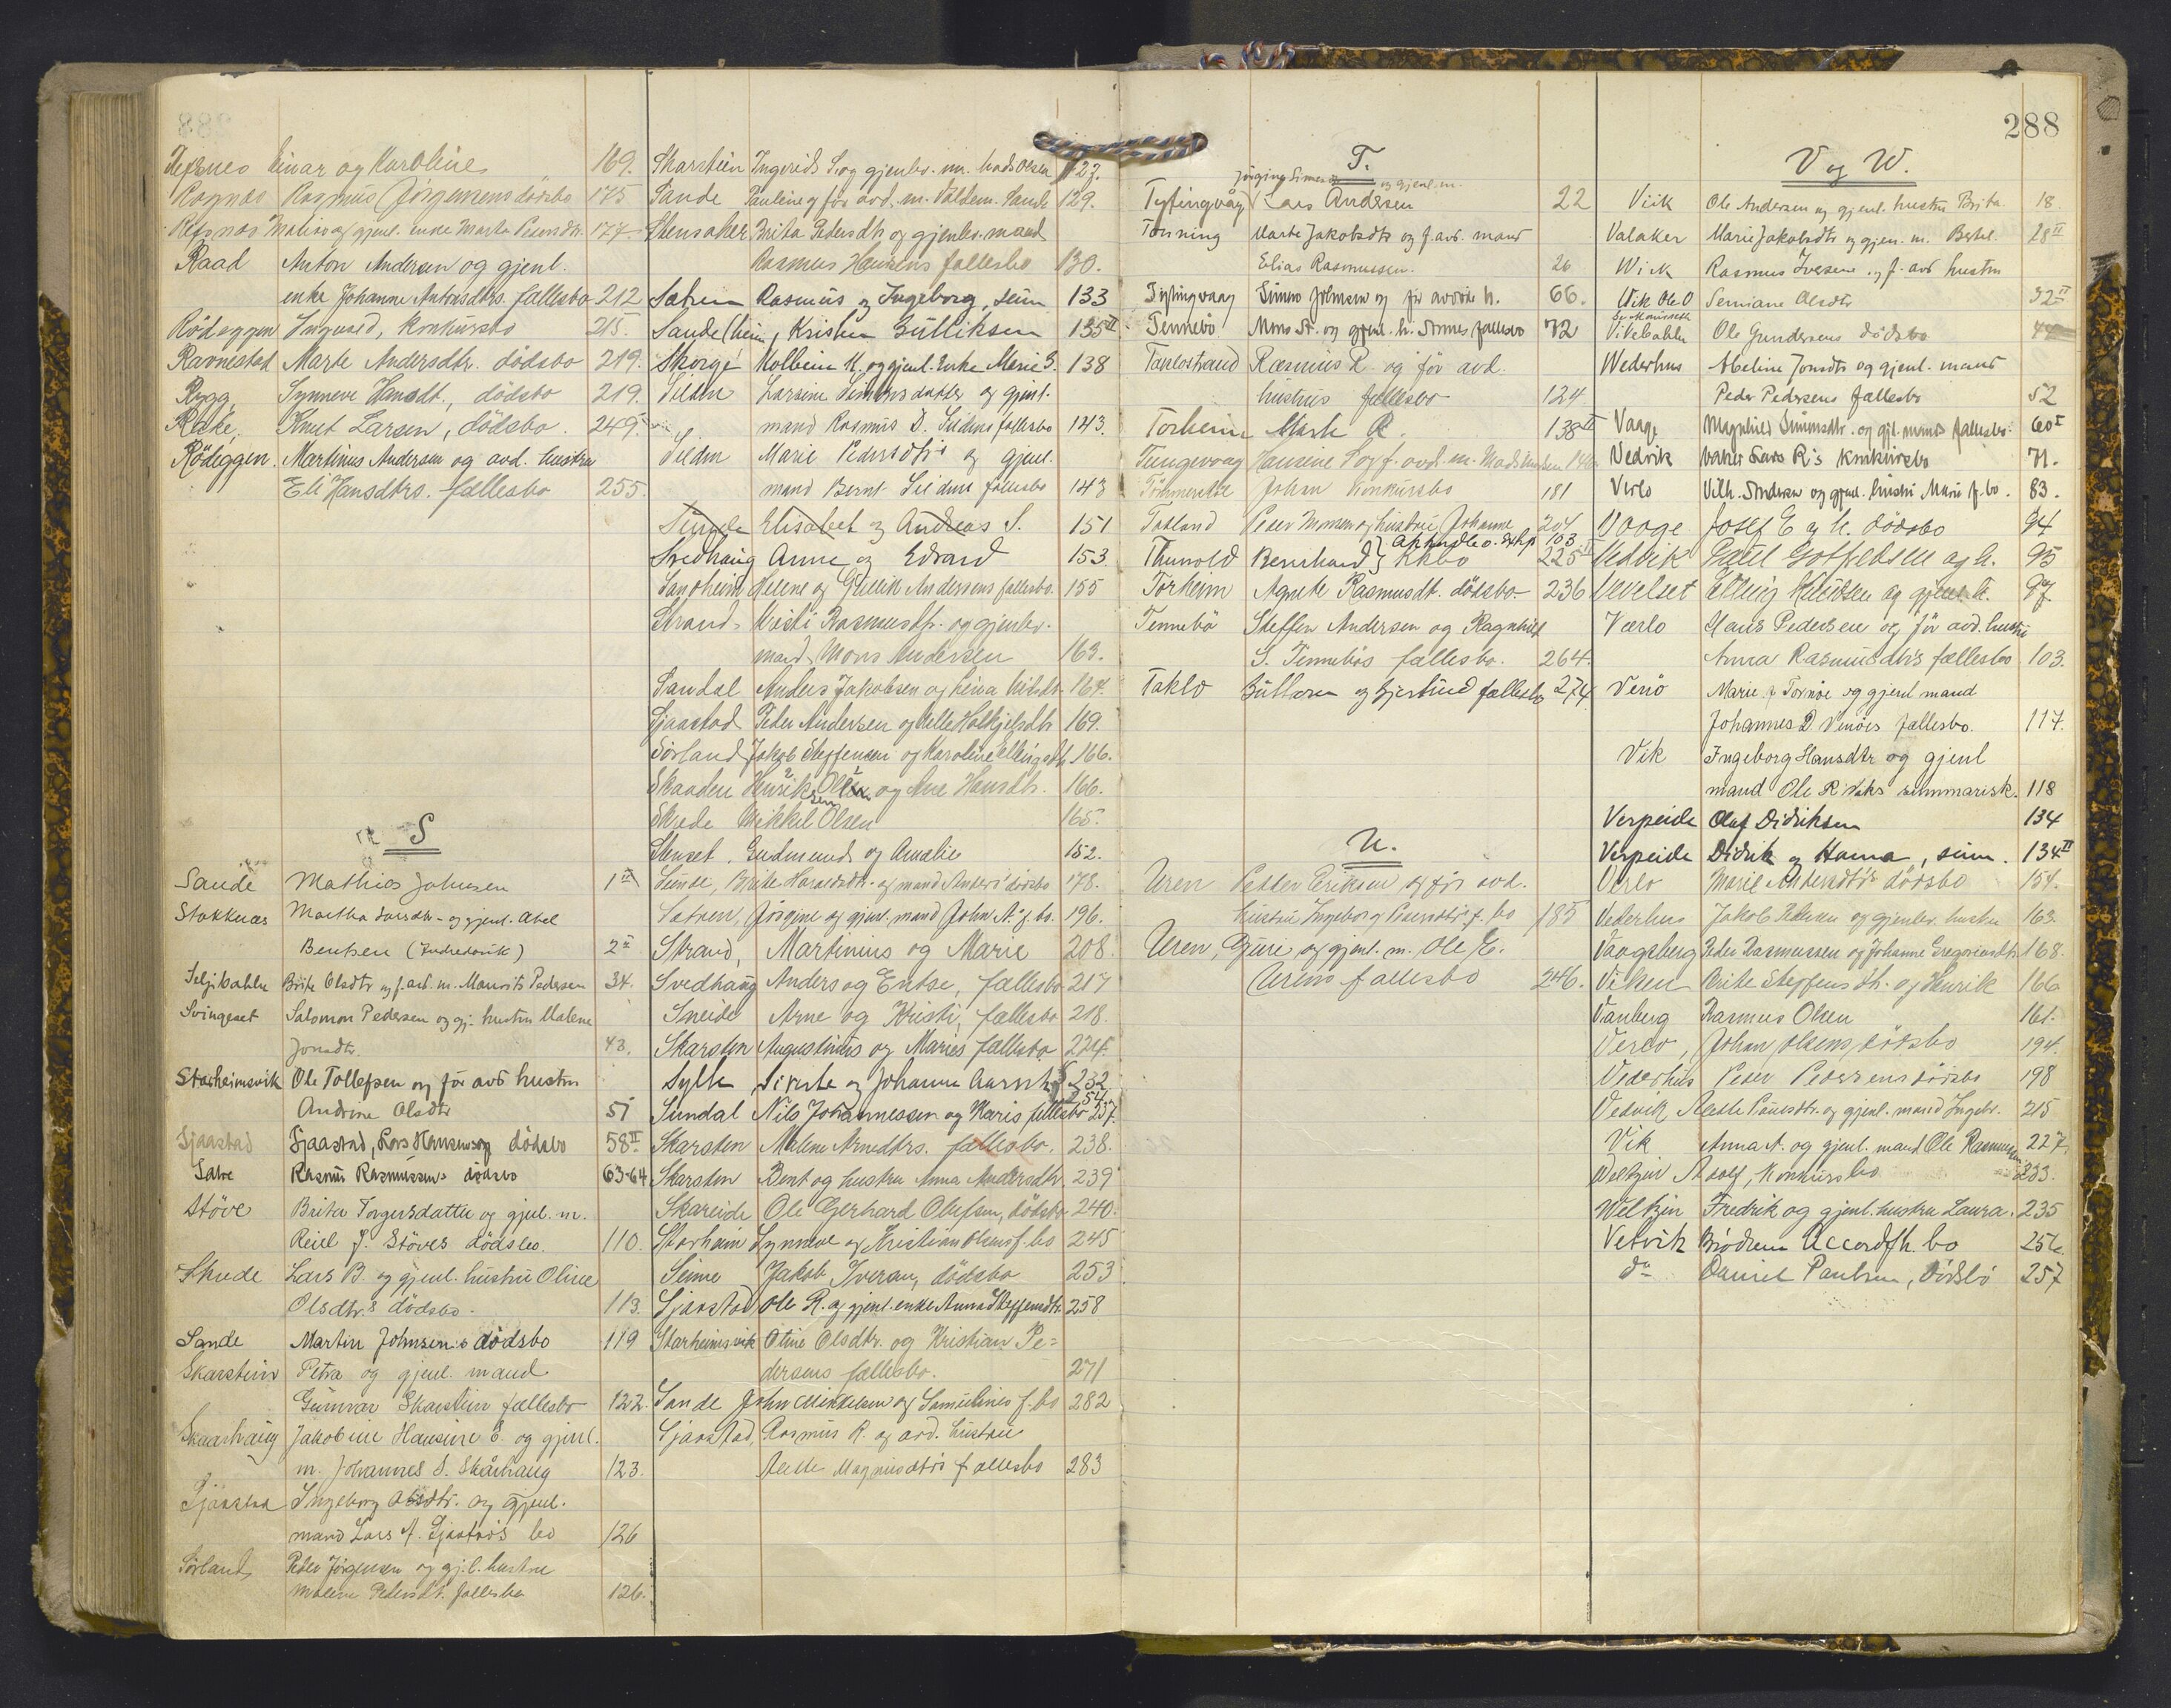 Refsnes Einar og Karoline 169.
Rognes Rasmus Jörgensens dödsbo 175
Refsnes Malise og gjenl. enke Marta Pedersdtr. 177
Raad Anton Andersen og gjenl.
enke Johanne Antonsdtrs. fællesbo 212
Rödseggen Ingvald, konkursbo 215
Ravnestad Marte Andersdtr. dödsbo 219.
Rygg Synneve Hansdt., dödsbo 219
Rake, Knut Larsen, dödsbo. 249.
Rödeggen. Martinus Andersen og avd. hustru
Eli Hansdtrs. fællesbo 255.
S
Sande Mathias Johnsen 1 II
Stokknes Martha Larsdtr. og gjenl. Abel
Bentsen (Indredavik) 2
Seljebakke Brite Olsdtr og f. avd. m. Maurits Pedersen 34.
Svingeset Salomon Pedersen og gj. hustru Malene
Jonsdtr. 43.
Starheimsvik Ole Tollefsen og för avd hustru
Andrine Olsdtr 51
Sjaastad Sjaastad, Lars Hansens dödsbo 58 II
Satre Rasmus Rasmussens dödsbo 63-64
Störe Brita Torgersdatter og gjenl. m.
Reiel J. Störes dödsbo. 110.
Skrede Lars B. og gjenl. hustru Oline
Olsdtr.s dödsbo. 113.
Sande Martin Johnsens dödsbo 119
Skarstein Petra og gjenl. mand
Gunnar Skarstein fællesbo 122.
Skaarhaug Jakobine Hansine E. og gjenl.
m. Johannes S. Skårhaug 123.
Sjaastad Ingeborg Olsdtr. og gjenl.
mand Lars A. Sjaastads bo 126
Sörland, Peder Jörgensen og gj.l. hustru
Malene Pedersdt. fællesbo 126.
Skarstein Ingerid S. og gjenlev. m. Mads Olsen 127.
Sande Pauline og för avd. m. Valdem. Sande 129.
Stensaker Brita Pedersdtr og gjenlev. mand
Rasmus Hansens fællesbo 130.
Sætren Rasmus og Ingeborg, sum 133
Sande (heim, Kristen Gulliksen 135 II
Skorge Kolbein M. og gjenl. Enke Marie S. 138
Silden Larsine Simonsdatter og gjenl.
mand Rasmus D. Sildens fællesbo 143.
Silden Marie Pedersdtr og gjenl.
mand Bernt Sildens fællesbo 143
Sunde Elisabet og Andreas S. 151
Svedhaug Anne og Edvard 153.
Sandheim Helene og Gullik Andersens fællesbo. 155
Strand Kristi Rasmusdtr. og gjenlev.
mand Mons Andersen 163.
Sandal Anders Jakobsen og Lena Nilsdtr 164.
Sjaastad Peder Andersen og Pelle Holkjelsdtr 169.
Sörland Jakob Steffensen og Karoline Ellingsdtr 166.
Skaaden Henrik Olsen og Ane Hansdtr. 166.
Skrede Mikkel Olsen 165
Stenset. Gudmund og Amalie 152.
Sunde, Brite Haraldsdtr. og mand Anders' dödsbo 178.
Sætren, Jörgine og gjenl. mand John A.'s f. bo. 196.
Strand, Martinius og Marie 208.
Svedhaug Anders og Entse, fællesbo 217
Smeide Arne og Kristi, fællesbo 218.
Skarsten Augustinus og Maries fællesbo 224.
Sylte Siverte og Johanne 232
254
Sundal Nils Johannessen og Karis fællesbo 237.
Skarsten Malene Arnedtrs. fællesbo. 238.
Skarsten Bent og hustru Anna Andersdtr. 239
Skareide Ole Gerhard Olufsen, dödsbo 240.
Starheim Synneve og Kristian Olsens f. bo 245
Seime Jakob Iversen, dödsbo 253
Sjaastad Ole R. og gjenl. enke Anna Steffensdtr. 258
Starheimsvik Oline Olsdtr. og Kristian Pe=
dersens fællesbo. 271
Sande John Mikkelsen og Samulines f. bo 282
Sjaastad, Rasmus R. og avd. hustru
Aelle Magnusdtrs fællesbo 283
288
T.
Jörgine Simes og gjenl. m.
Tytingvåg Lars Andersen 22
Tonning Marte Jakobsdtr og f. avd. mand
Elias Rasmussen. 26
Tytingvaag Simon Johnsen og för avdöde h. 66.
Tennebö Mons St. og gjenl. h. Annes fællesbo 72
Taklostrand Rasmus R. og för avd.
hustrus fællesbo 124
Torheim Mark R. 138 II
Tungevaag Hansine L og f. avd. m. Mads 146
Tömmerstöl Johan konkursbo 181
Takland Peder Monsen og hustru Johanne 204
103
Thunold Bernhard kkbo 225 II
Torheim Agnete Rasmusdt. dödsbo 236
Tennebö Steffen Andersen og Ragnhild
S. Tennebös fællesbo. 264.
Taklo Guttorm og Gjertrud fællesbo 274
U.
Uren Petter Eriksen og för avd.
hustru Ingeborg Pedersdtrs f. bo 185
Uren, Guri og gjenl. m. Ole E.
Urens fællesbo 246.
V og W.
Viik Ole Andersen og gjenl. hustru Brita 18.
Valaker Marie Jakobsdtr og gjen. m. Bertel. 28 II
Wiik Rasmus Iversen og f. avd hustru
Wik Ole O Semiane Olsdtr 32 II
Vikebakke Ole Gundersens dödsbo
Wederhus Abeline Jonsdtr og gjenl. mand
Peder Pedersens fællesbo 52
Vaage Magnhild Simonsdtr. og gjl. mands fællesbo 60 I
Vedvik Lars R's konkursbo 71.
Verlo Vilh. Andersen og gjenl. hustru Marie f. bo. 83.
Vaage Josef E og h. dödsbo 94
Vedvik Paul Gotfredsen og h. 95
Vevelset Elling Hilbertsen og gjenl. h. 97
Værlo Hans Pedersen og för avd. hustru
Anna Rasmusdtrs fællesbo 103.
Venö Marie J. Tornöe og gjenl mand
Johannes D Venöes fællesbo. 117.
Vik Ingeborg Hansdtr og gjenl
mand Ole R Viks summarisk. 118
Verpeide Oluf Didriksen 134
Verpeide Didrik og Hanna, sum. 134 II
Verlo Marie Andersdtr's dödsbo 154.
Vederhus Jakob Pedersen og gjenlev. hustru 163.
Vaagsberg Peder Rasmussen og Johanne Gregoriusdtr. 168.
Viken Brite Steffensdtr. og Henrik 166
Vanberg Rasmus Olsen 161.
Verlo, Johan Olsens dödsbo 194.
Vederhus Peder Pedersens dödsbo 198
Vedvik, Aelle Paulsdtr. og gjenl. mand Ingebr. 215
Vik Anna A. og gjenl. mand Ole Rasmussen 227.
Weltzin Adolf, Konkursbo 233.
Weltzin Fredrik og gjenl. hustru Laura. 235
Vetvik Brödrene Accordfh. bo 256.
do Daniel Paulsen, dödsbo 257